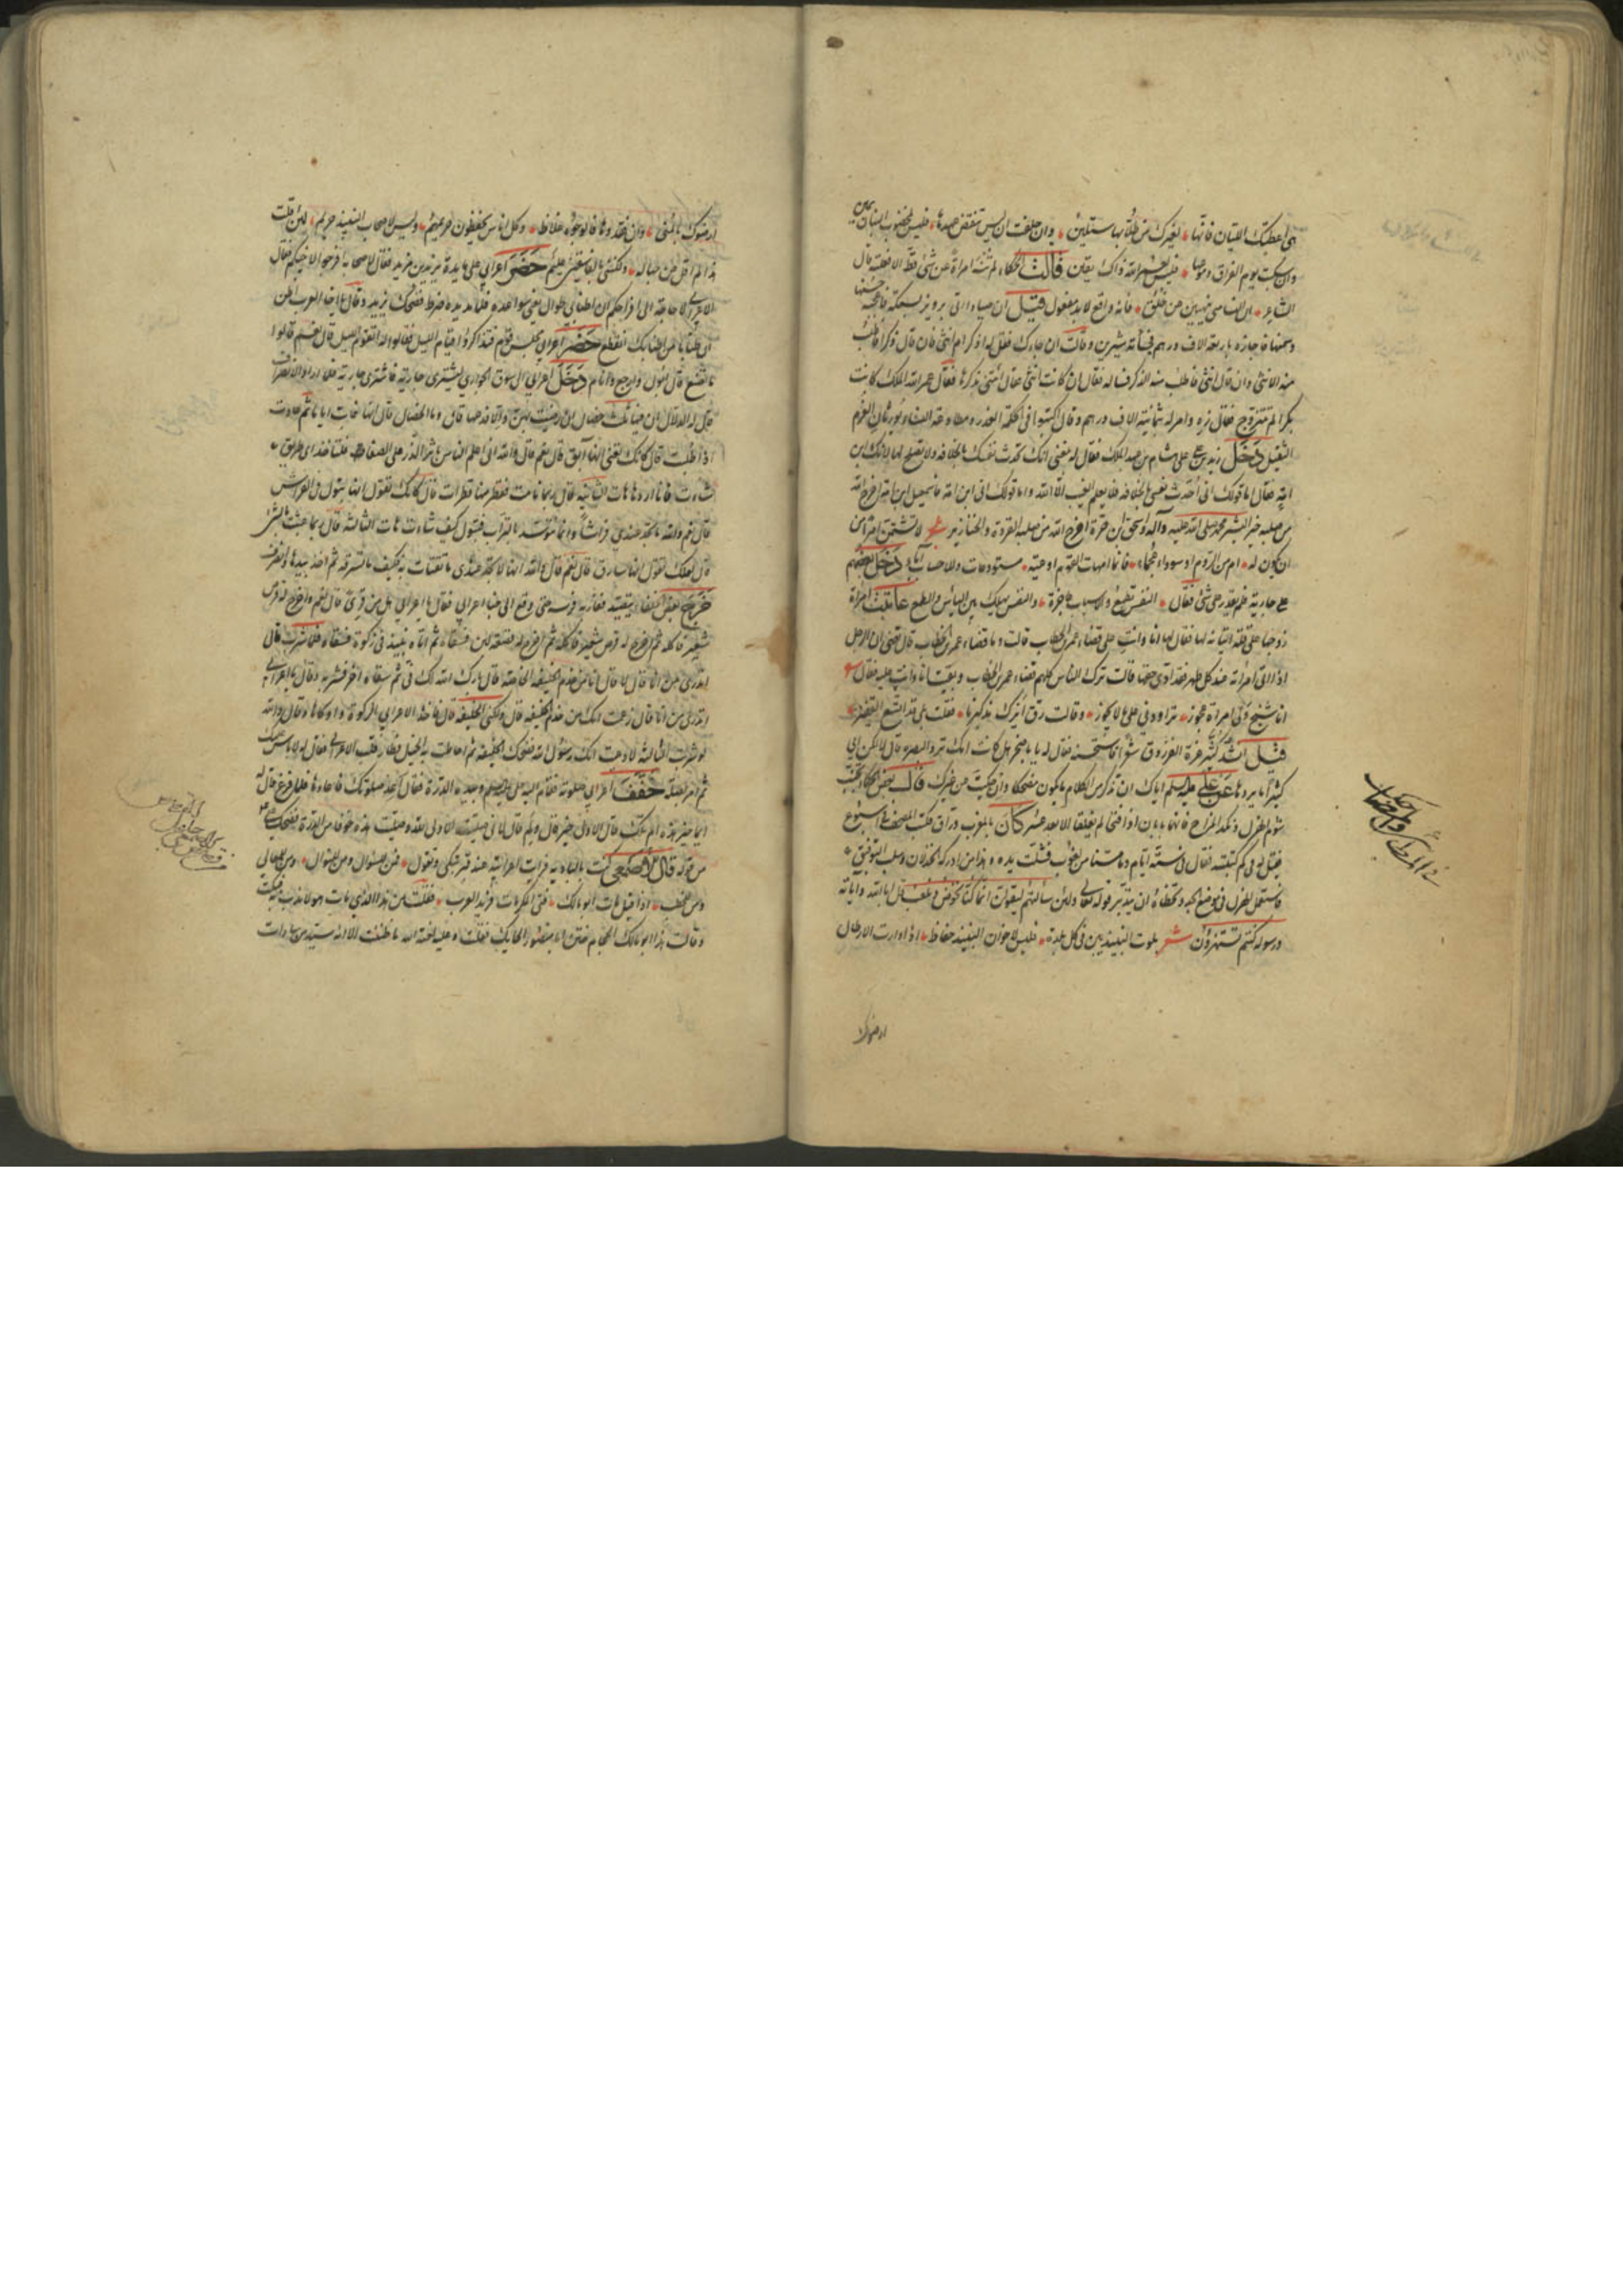 هي اعطتك الليان فانها لغيرك من خلانها ستلين وان حلفت ان ليس تنقض عهدها فليس لمخضوب البنان يمين
وان سكبت يوم الفراق دموعها فليس لعمر الله ذاك يقين قالت الحكماء لم تنه امراة عن شئ قط الا فعلته قال
الشاعر ان النساء متى ينهين عن خلق فانه واقع لا بد مفعول قيل ان صيادا اتى برويز بسمكة فاعجبه حسنها
وسمنها فاجازه باربعة الاف درهم فخطأته شيرين وقالت اذا جاءك فقل له اذكر ام انثى فان قال ذكر فاطلب
منه الانثى وان قال انثى فاطلب منه الذكر فساله فقال ان كانت انثى فقال انثى ذكرها فقال عمر الله الملك كانت
بكرا لم تتزوج فقال زه وامر له بثمانية الاف درهم وقال اكتبوا في الحكمة الغدر ومطاوعة النساء يورثان الغرم
الثقيل دخل زيد بن علي على هشام بن عبد الملك فقال له بلغني انك تحدث نفسك بالخلافة ولا تصلح لها لانك ابن
امة فقال اما قولك اني احدث نفسي بالخلافة فلا يعلم الغيب الا الله واما قولك اني ابن امة فاسمعيل ابن امة اخرج الله
من صلبه خير البشر محمد صلى الله عليه وآله واسحق ابن حرة اخرج الله من صلبه القردة والخنازير لا تشتمن امرأ من
ان تكون له ام من الروم او سوداء عجماء فانما امهات القوم اوعية مستودعات وللاحساب آباء دخل بعضهم
على جارية فلم يقدر على شئ فقال النفس تطمع والاسباب عاجزة والنفس تهلك بين الياس والطمع عاتبت امرأة
زوجها على قلة اتيانه لها فقال لها انا وانت على قضاء عمر بن الخطاب قالت وما قضاء عمر بن الخطاب قال قضى ان الرجل
اذا اتى امرأته عند كل طهر فقد ادى حقها قالت ترك الناس كلهم قضاء عمر بن الخطاب وبقيت انا وانت عليه فقال
انا شيخ ولي امرأة عجوز تراودني على ما لا يجوز وقالت رق ايرك مذ كبرنا فقلت بلى قد اتسع القفيز
قيل انشد كثير عزة الفرزدق شعرا فاستحسنه فقال له يا با صخر هل كانت امك ترد البصرة قال لا لكن ابي
كثيرا ما يردها عن علي عليه السلم اياك ان تذكر من الكلام ما يكون مضحكا وان حكيت عن غيرك قال بعض الحكماء تجنب
شوم الهزل ونكد المزاح فانهما بابان اذا فتحا لم يغلقا الا بعد عسر كان بالمغرب وراق يكتب المصحف في اسبوع
فقيل له في كم كتبته فقال في ستة ايام وما مسنا من لغوب فشلت يده وهذا من ادركه الخذلان وسلب التوفيق
فاستعمل الهزل في موضع الجد ولحظاه ان يتدبر قوله تعالى ولئن سألتهم ليقولن انما كنا نخوض ونلعب قل ابالله وآياته
ورسوله كنتم تستهزؤن شعر بلوت النبيذيين في كل بلدة فليس لاخوان النبيذ حفاظ اذا دارت الارطال
ارضوك
ارضوك بالمنى وان فقدوها فالوجوه غلاظ وكل اناس يحفظون حريمهم وليس لاصحاب النبيذ حريم لئن قلت
هذا لم اقل عن جهالة ولكنني بالفاسقين عليم حضر اعرابي على مايدة يزيد بن مزيد فقال لاصحابه افرجوا لاخيكم فقال
الاعرابي لا حاجة الى افراجكم ان اطنابي طوال يعني سواعده فلما مد يده ضرط فضحك يزيد وقال يا اخا العرب اظن
ان طنبا من اطنابك انقطع حضر اعرابي مجلس قوم فتذاكروا قيام الليل فقالوا له اتقوم الليل قال نعم قالوا
ما تصنع قال ابول وارجع وانام دخل اعرابي الى سوق الجواري ليشتري جارية فاشترى جارية فلما اراد الانصراف
قال له الدلال ان فيها ثلث خصال ان رضيت بهن والا فدعها قال وما الخصال قال انها تغيب اياما ثم تعود
اذا طلبت قال كانك تعني انها آبق قال نعم قال والله اني اعلم الناس باثر الذر على الصفا فلتاخذ اي طريق
شاءت فانا اردها هات الثانية قال ربما نامت فقطر منها قطرات قال كانك تقول انها تبول في الفراش
قال نعم قال والله ما تجد عندي فراشا وانما نتوسد التراب فتبول كيف شاءت هات الثالثة قال ربما عبثت بالشئ
قال لعلك تقول انها سارق قال نعم قال والله انها لا تجد عندي ما تقتات به فكيف ما تسرقه ثم اخذ بيدها وانصرف
خرج بعض الخلفاء يتصيد فغار به فرسه حتى وقع الى خباء اعرابي فقال يا اعرابي هل من قرى قال نعم واخرج له قرص
شعير فاكله ثم اخرج له فضلة لبن فسقاه ثم اتاه بنبيذ في ركوة فسقاه فلما شرب قال
اتدري من انا قال لا قال انا من خدم الخليفة الخاصة قال بارك الله لك في ثم سقاه اخر فشربه وقال يا اعرابي
اتدري من انا قال زعمت انك من خدم الخليفة قال ولكني الخليفة قال فاخذ الاعرابي الركوة واوكاها وقال والله
لو شربت الثالثة لادعيت انك رسول الله فضحك الخليفة ثم احاطت به الخيل فطار قلب الاعرابي فقال له لا باس عليك
ثم امر بصلة خفف اعرابي صلوته فقام اليه علي عليه السلم وبيده الدرة فقال اعد صلوتك فاعادها فلما فرغ قال له
ايما خير هذه ام تلك قال الاولى خير قال ولم قال لاني صليت الاولى لله وصليت هذه خوفا من الدرة فضحك
من قوله قال الاصمعي كنت بالبادية فرايت اعرابية عند قبر تبكي وتقول فمن للسؤال ومن للنوال ومن للمعالي
ومن للخطب اذا قيل مات ابو مالك فتى المكرمات فريد العرب فقلت من هذا الذي مات هولاء بموته فبكت
وقالت هذا ابو مالك الحجام ختن ابي منصور الحايك فقلت عليه لعنة الله ما ظننت الا انه سيد من سادات